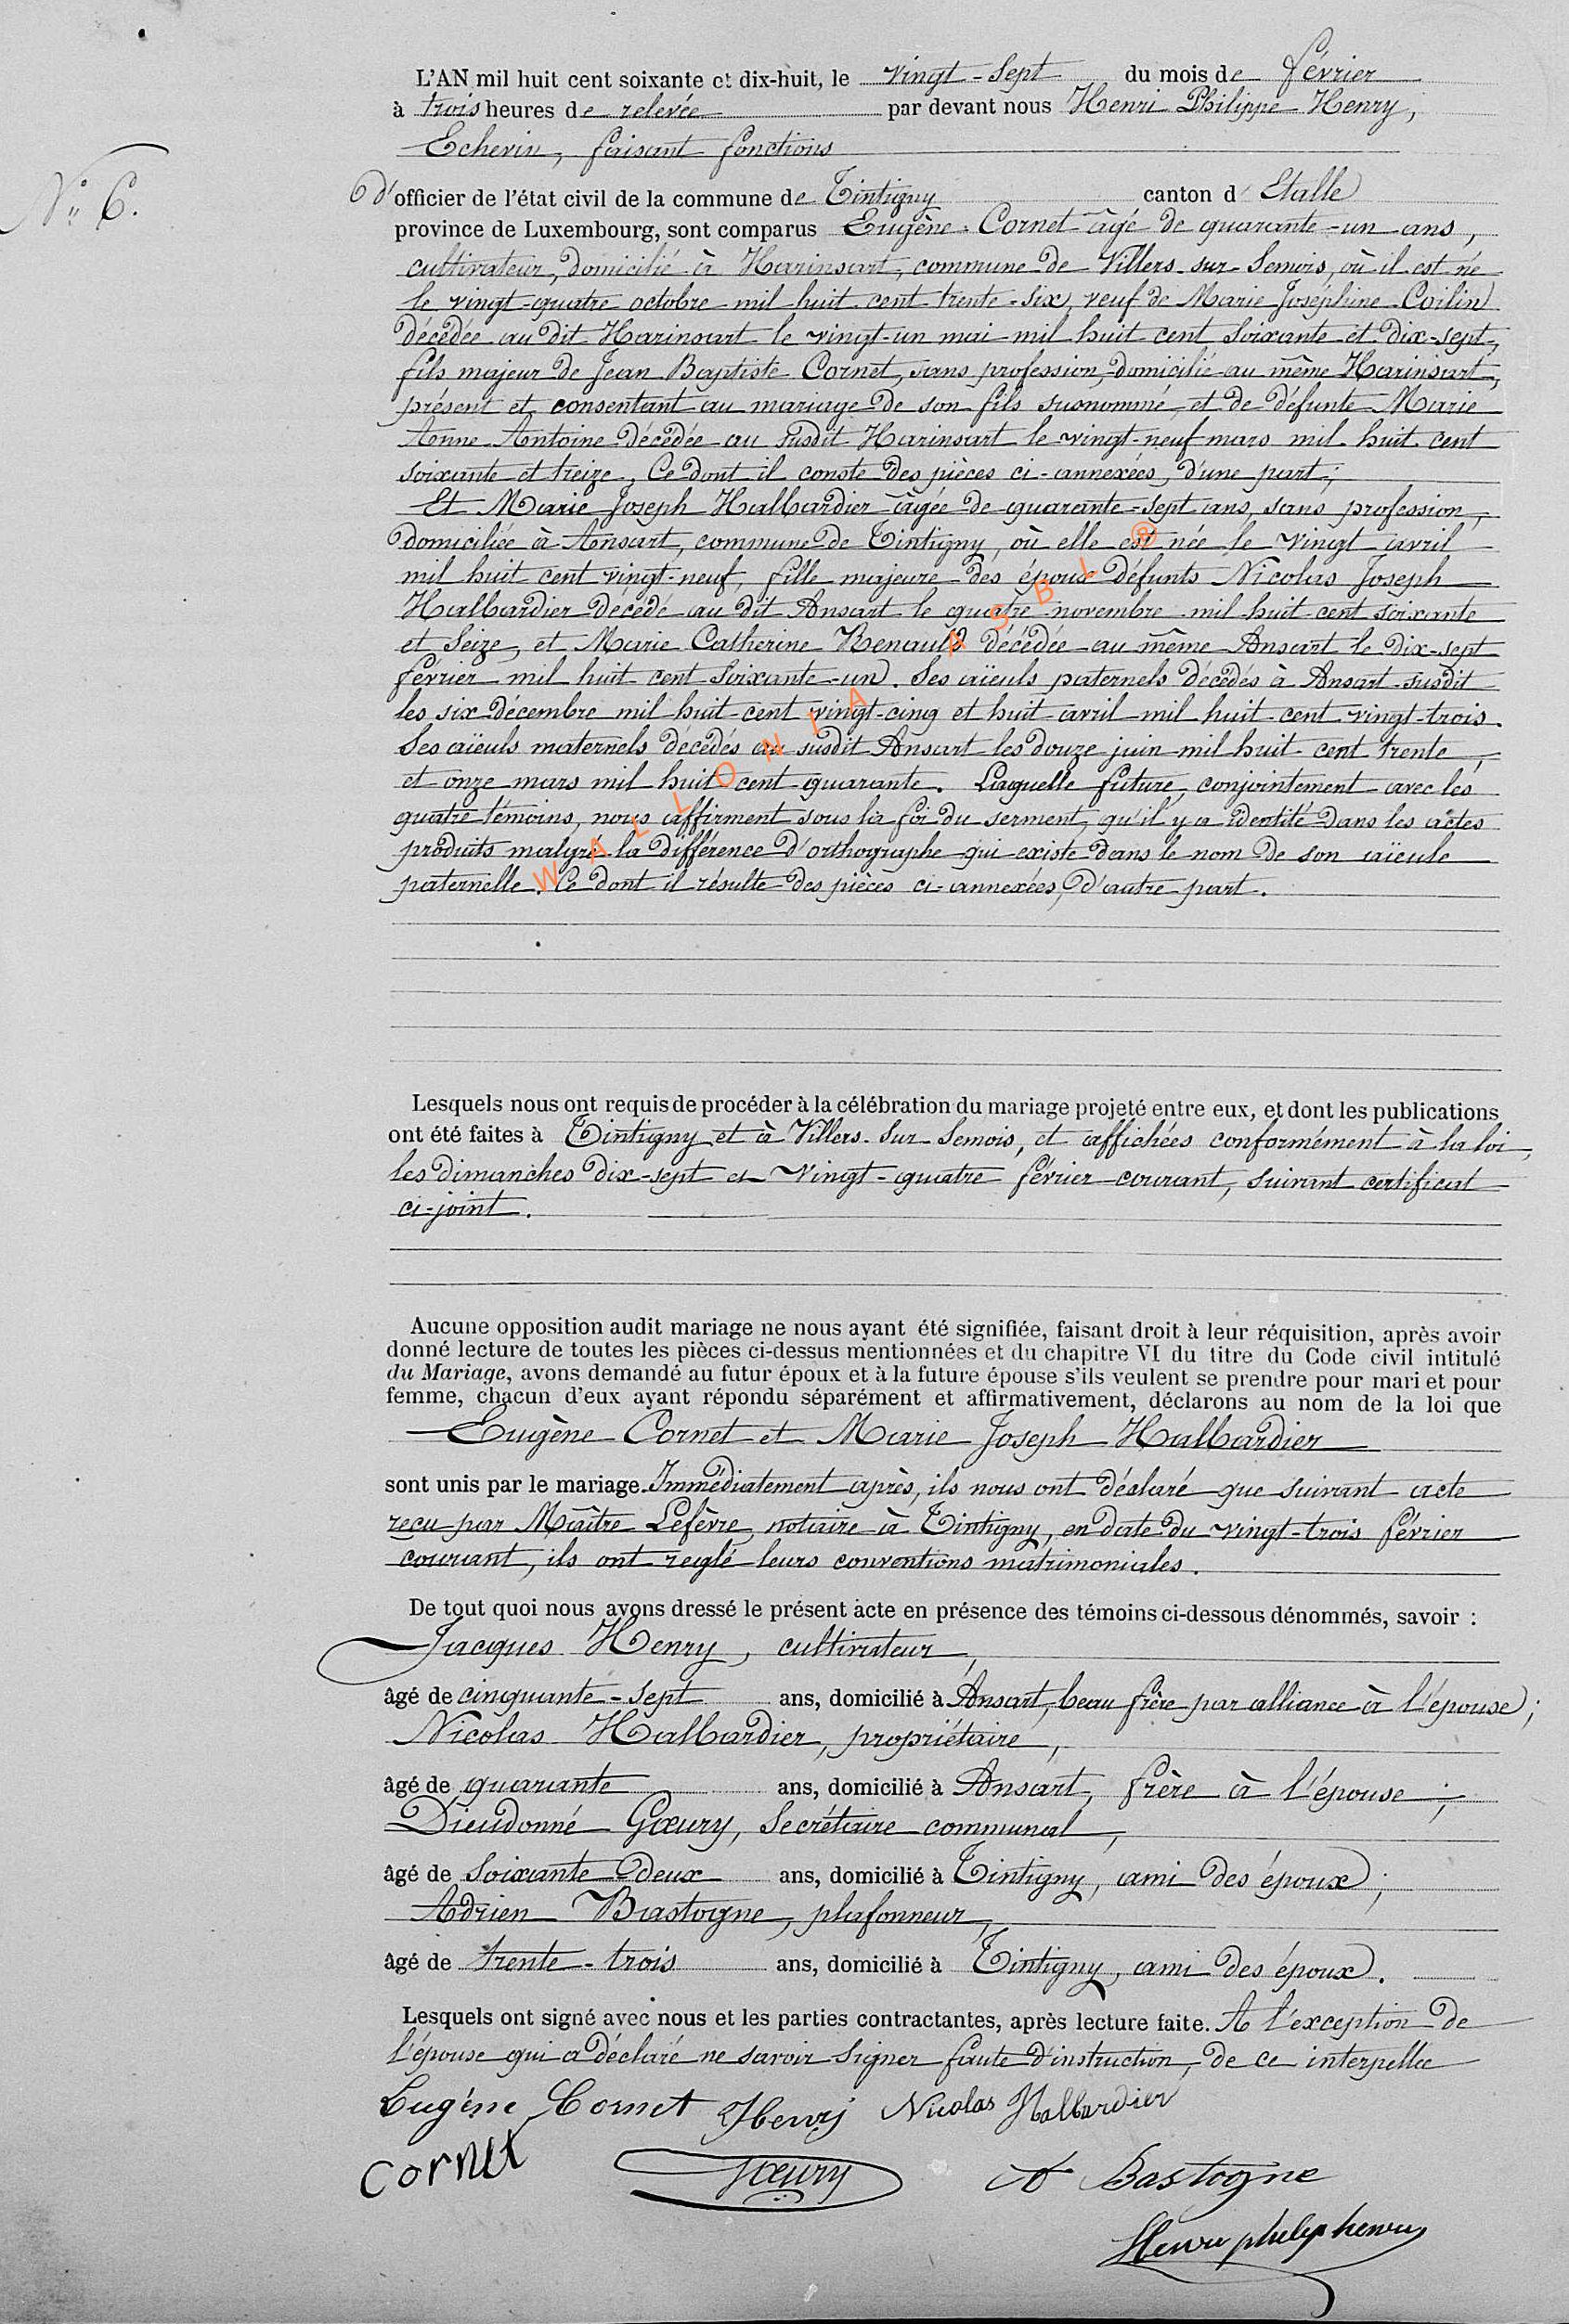 L'AN mil huit cent soixante et dix-huit, le vingt-sept du mois de février
à trois heures de relevée par devant nous Henri Philippe Henry,
Echevin, faisant fonctions
N° 6.
d'officier de l'état civil de la commune de Tintigny canton d'Etalle
province de Luxembourg, sont comparus Eugène Cornet âgé de quarante-un ans,
cultivateur, domicilié à Harinsart, commune de Villers-sur-Semois, où il est né
le vingt-quatre octobre mil huit cent trente-six, veuf de Marie Joséphine Coilin
décédée au dit Harinsart le vingt-un mai mil huit cent soixante et dix-sept,
fils majeur de Jean Baptiste Cornet, sans profession, domicilié au même Harinsart,
présent et consentant au mariage de son fils susnommé, et de défunte Marie
Anne Antoine décédée au susdit Harinsart le vingt-neuf mars mil huit cent
soixante et treize, Ce dont il conste des pièces ci-annexées, d'une part;
Et Marie Joseph Halbardier âgée de quarante-sept ans, sans profession,
domiciliée à Ansart, commune de Tintigny, où elle est née le vingt avril
mil huit cent vingt-neuf, fille majeure des époux défunts Nicolas Joseph
Halbardier décédé au dit Ansart le quatre novembre mil huit cent soixante
et seize, et Marie Catherine Renauld décédée au même Ansart le dix-sept
février mil huit cent soixante-un. Ses aïeuls paternels décédés à Ansart susdit
les six décembre mil huit cent vingt-cinq et huit avril mil huit cent vingt-trois.
Ses aïeuls maternels décédés au susdit Ansart les douze juin mil huit cent trente,
et onze mars mil huit cent quarante. Laquelle future, conjointement avec les
quatre témoins, nous affirment sous la foi du serment, qu'il y a identité dans les actes
produits malgré la différence d'orthographe qui existe dans le nom de son aïeule
paternelle. Ce dont il résulte des pièces ci-annexées, d'autre part.
WALLONIA ASBL ®
Lesquels nous ont requis de procéder à la célébration du mariage projeté entre eux, et dont les publications
ont été faites à Tintigny et à Villers-sur-Semois, et affichées conformément à la loi,
les dimanches dix-sept et vingt-quatre février courant, suivant certificat
ci-joint.
Aucune opposition audit mariage ne nous ayant été signifiée, faisant droit à leur réquisition, après avoir
donné lecture de toutes les pièces ci-dessus mentionnées et du chapitre VI du titre du Code civil intitulé
du Mariage, avons demandé au futur époux et à la future épouse s'ils veulent se prendre pour mari et pour
femme, chacun d'eux ayant répondu séparément et affirmativement, déclarons au nom de la loi que
Eugène Cornet et Marie Joseph Halbardier
sont unis par le mariage. Immédiatement après, ils nous ont déclaré que suivant acte
reçu par Maître Lefèvre, notaire à Tintigny, en date du vingt-trois février
courant, ils ont reglé leurs conventions matrimoniales.
De tout quoi nous avons dressé le présent acte en présence des témoins ci-dessous dénommés, savoir :
Jacques Henry, cultivateur,
âgé de cinquante-sept ans, domicilié à Ansart, beau frère par alliance à l'épouse;
Nicolas Halbardier, propriétaire,
âgé de quarante ans, domicilié à Ansart, frère à l'épouse;
Dieudonné Gœury, Secrétaire communal,
âgé de soixante deux ans, domicilié à Tintigny, ami des époux;
Adrien Bastogne, plafonneur,
âgé de trente-trois ans, domicilié à Tintigny, ami des époux.
Lesquels ont signé avec nous et les parties contractantes, après lecture faite. A l'exception de
l'épouse qui a déclaré ne savoir signer faute d'instruction, de ce interpellée
Eugène Cornet Henry Nicolas Halbardier
Cornet Gœury A Bastogne
Henri philip henry